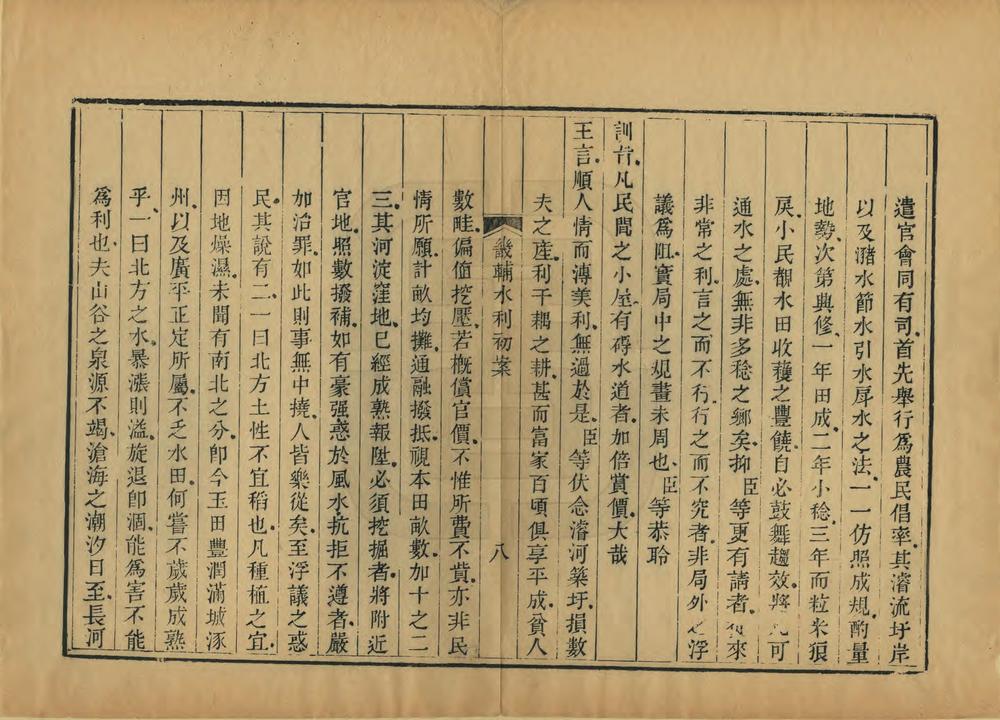 遣官會同有司首先舉行爲農民倡率其濬流圩岸
以及瀦水節水引水戽水之法一一仿照成規酌量
地勢次第興修一年田成二年小稔三年而粒米狼
戾小民覩水田收穫之豐饒自必鼓舞趨效將 可
通水之處無非多稔之鄉矣抑臣等更有請者 來
非常之利言之而不行行之而不究者非局外之浮
議爲阻實局中之規畫未周也臣等恭聆
訓旨凡民間之小屋有碍水道者加倍賞價大哉
王言順人情而溥美利無過於是臣等伏念濬河築圩損數
夫之產利千耦之耕甚而富家百頃俱享平成貧人
畿輔水利初案 八
數畦偏値挖壓若概償官價不惟所費不貲亦非民
情所願計畝均攤通融撥抵視本田畝數加十之二
三其河淀窪地已經成熟報陞必須挖掘者將附近
官地照數撥補如有豪强惑於風水抗拒不遵者嚴
加治罪如此則事無中撓人皆樂從矣至浮議之惑
民其說有二一曰北方土性不宜稻也凡種植之宜
因地燥濕未聞有南北之分卽今玉田豐潤滿城涿
州以及廣平正定所屬不乏水田何嘗不歲歲成熟
乎一曰北方之水暴漲則溢旋退卽涸能爲害不能
爲利也夫山谷之泉源不竭滄海之潮汐日至長河